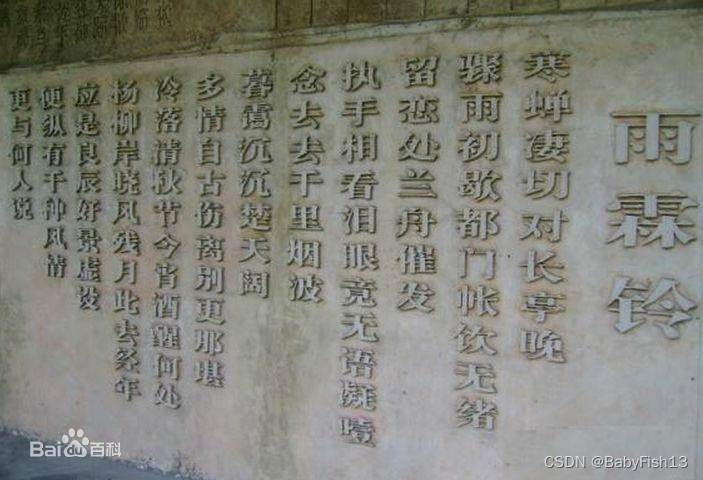 雨霖铃
寒蝉凄切对长亭晚
骤雨初歇都门帐饮无绪
留恋处兰舟催发
执手相看泪眼竟无语凝噎
念去去千里烟波
暮霭沉沉楚天阔
多情自古伤离别更那堪
冷落清秋节今宵酒醒何处
杨柳岸晓风残月此去经年
应是良辰好景虚设
便纵有千种风情
更与何人说
Bai百科
CSDN @BabyFish13